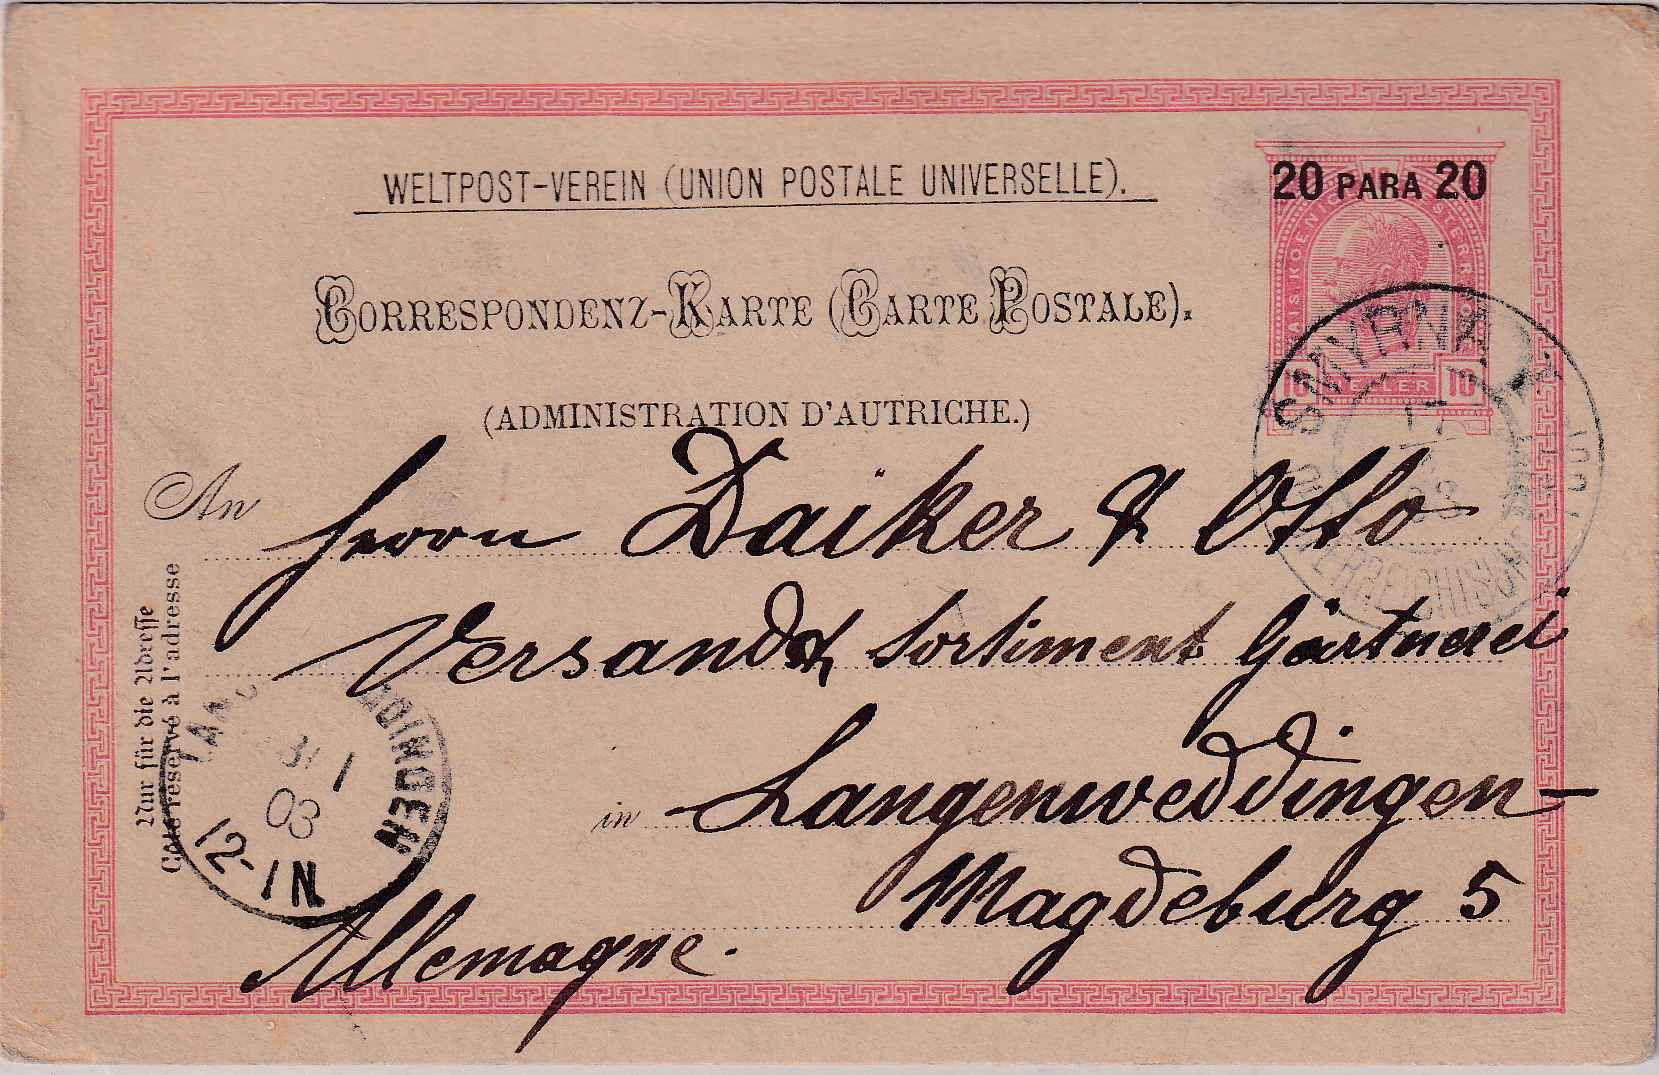 WELTPOST-VEREIN (UNION POSTALE UNIVERSELLE).
20 PARA 20
CORRESPONDENZ-KARTE (CARTE POSTALE).
(ADMINISTRATION D'AUTRICHE.)
10 HELLER 10
SMYRNA
17
An Herrn Daiker & Otto
Versandt Sortiment Gärtnerei
in Langenweddingen-
Magdeburg 5
Allemagne.
Nur für die Adresse
Côté réservé à l'adresse
LANG DDINGEN
1
03
12-1N